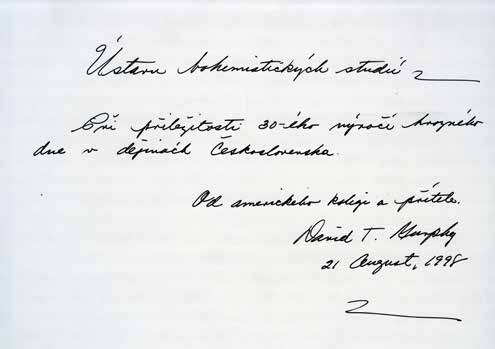 Ústavu bohemistických studií
Při přiležitosti 30-ého výročí hrozného
dne v dějinách Československa.
Od amerického kolegi a přítele.
David T. Murphy
21 August, 1998